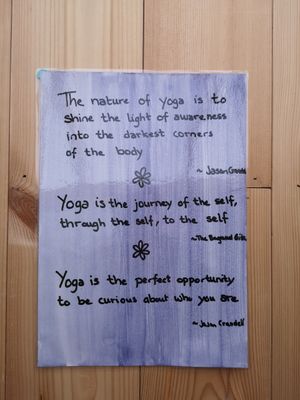 The nature of Yoga is to
shine the light of awareness
into the darkest corners
of the body
~ Jason Crandell
Yoga is the journey of the self,
through the self, to the self
~The Bagavad Gita
Yoga is the perfect opportunity
to be curious about who you are
~ Jason Crandell